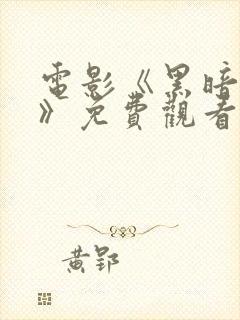 電影《黑暗
》免費觀看
黃郢